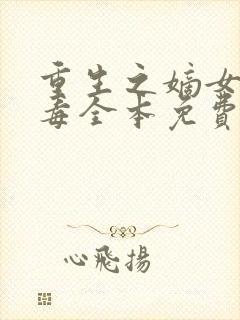 重生之嫡女
毒全本免費
心飛揚